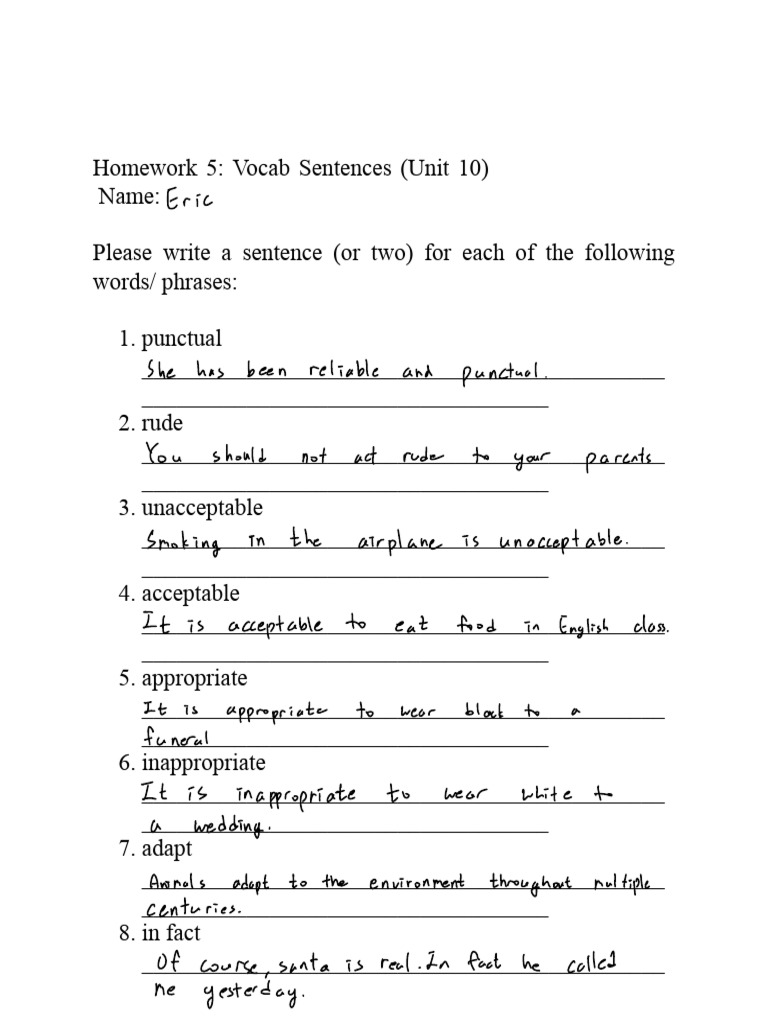 Homework 5: Vocab Sentences (Unit 10)
Name: Eric
Please write a sentence (or two) for each of the following
words/ phrases:
1. punctual
She has been reliable and punctual.
2. rude
You should not act rude to your parents
3. unacceptable
Smoking in the airplane is unacceptable.
4. acceptable
It is acceptable to eat food in English class.
5. appropriate
It is appropriate to wear black to a
funeral
6. inappropriate
It is inappropriate to wear white to
a wedding.
7. adapt
Animals adapt to the environment throughout multiple
centuries.
8. in fact
Of course, santa is real. In fact he called
me yesterday.